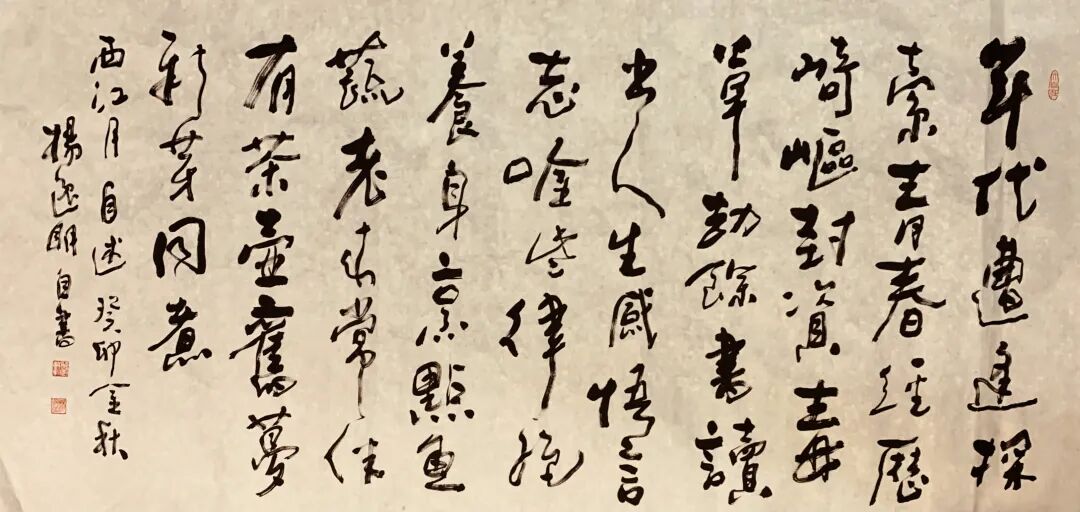 年代遭逢探
索青春經歷
崎嶇封資毒
草劫餘書讀
出人生感悟言
志唫些律絕
養身烹點魚
蔬老來常伴
有茶壺舊夢
新芽同煮
西江月自述 癸卯金秋
楊逸明自書